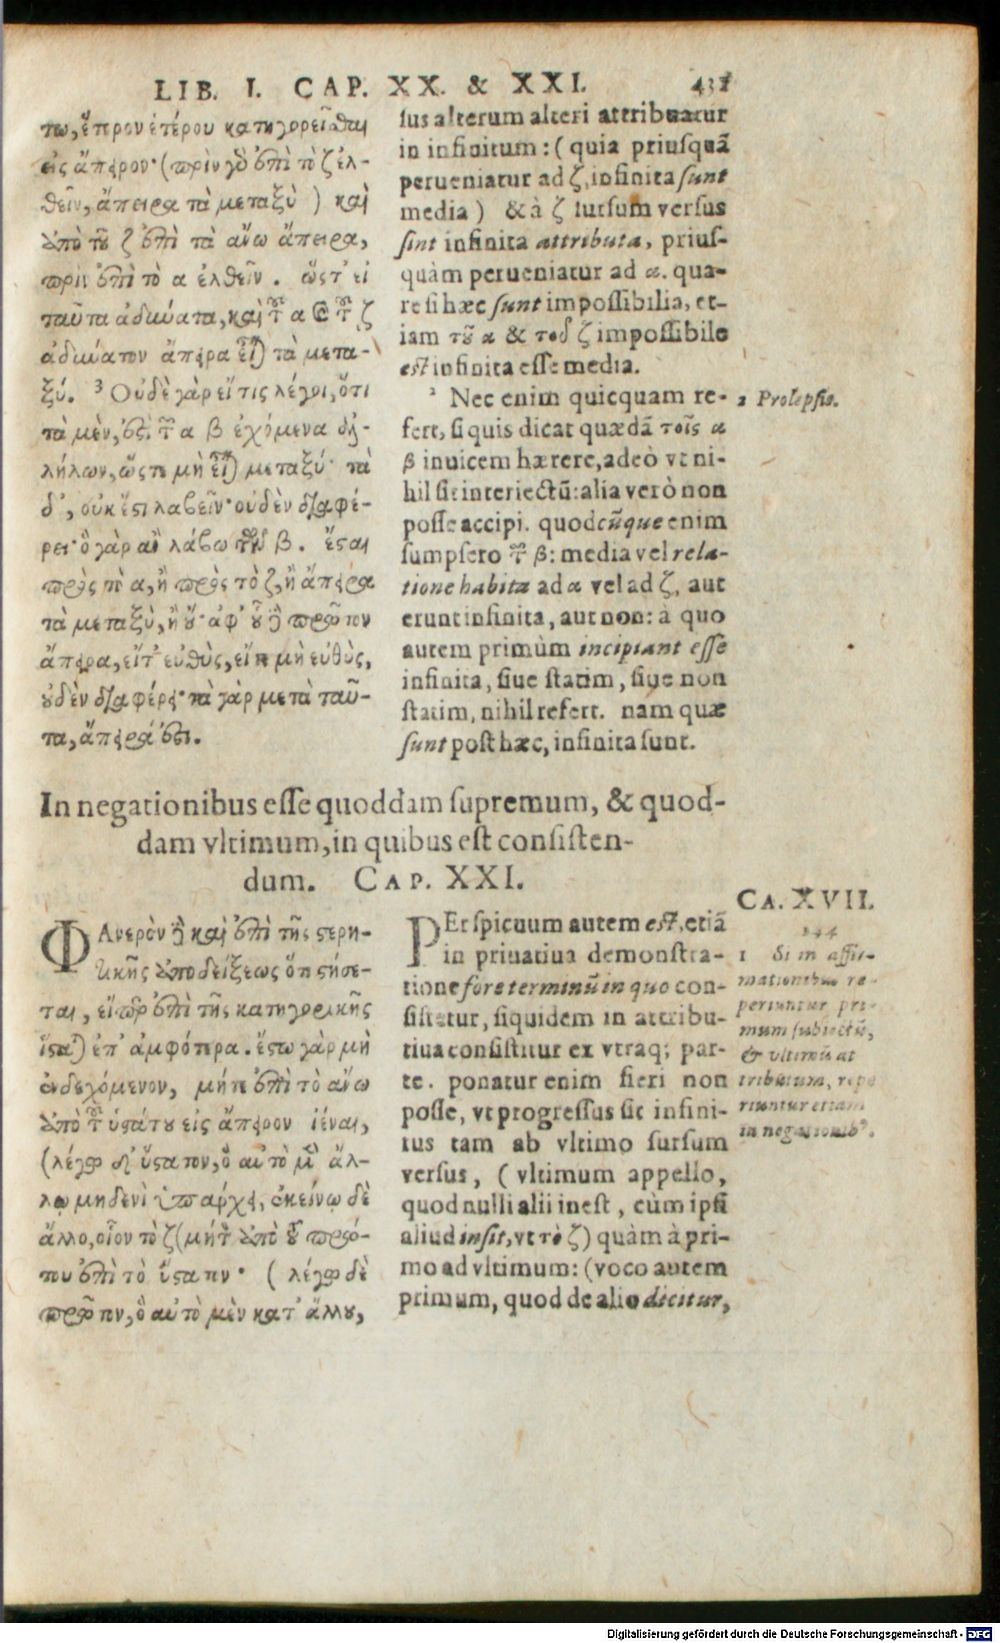 LIB. I. CAP. XX. & XXI. 431
τω, ἕτερον ἑτέρου κατηγορεῖσθαι
εἰς ἄπειρον· (πρὶν γὰρ ἐπὶ τὸ ζ ἐλ-
θεῖν, ἄπειρα τὰ μεταξὺ ) καὶ
ἀπὸ τοῦ ζ ἐπὶ τὰ ἄνω ἄπειρα,
πρὶν ἐπὶ τὸ α ἐλθεῖν . ὥςτ' εἰ
ταῦτα ἀδύνατα, καὶ τοῦ α καὶ τοῦ ζ
ἀδύνατον ἄπειρα εἶναι τὰ μετα-
ξύ. ³ Οὐδὲ γὰρ εἴ τις λέγοι, ὅτι
τὰ μὲν, ἐςὶ τοῦ α β ἐχόμενα ἀλ-
λήλων, ὥςτε μὴ εἶναι μεταξύ· τὰ
δ', οὐκ ἔςι λαβεῖν· οὐδὲν διαφέ-
ρει· ὃ γὰρ ἂν λάβω τῶν β . ἔςαι
πρὸς τὸ α, ἢ πρὸς τὸ ζ, ἢ ἄπειρα
τὰ μεταξὺ, ἢ οὔ· ἀφ' οὗ δὴ πρῶτον
ἄπειρα, εἴτ' εὐθὺς, εἴτε μὴ εὐθὺς,
οὐδὲν διαφέρει· τὰ γὰρ μετὰ ταῦ-
τα, ἄπειρά ἐςι.
sus alterum alteri attribuatur
in infinitum : ( quia priusquā
perueniatur ad ζ, infinita sunt
media ) & à ζ sursum versus
sint infinita attributa, prius-
quàm perueniatur ad α. qua-
re si hæc sunt impossibilia, et-
iam τοῦ α & τοῦ ζ impossibile
est infinita esse media.
² Nec enim quicquam re-
fert, si quis dicat quædā τοῖς α
β inuicem hærere, adeò vt ni-
hil sit interiectū: alia verò non
posse accipi. quodcūque enim
sumpsero τοῦ β: media vel rela-
tione habita ad α vel ad ζ, aut
erunt infinita, aut non: à quo
autem primùm incipiant esse
infinita, siue statim, siue non
statim, nihil refert. nam quæ
sunt post hæc, infinita sunt.
2 Prolepsis.
In negationibus esse quoddam supremum, & quod-
dam vltimum, in quibus est consisten-
dum. CAP. XXI.
ΦΑνερὸν δὲ καὶ ἐπὶ τῆς ςερη-
τικῆς ἀποδείξεως ὅτι ςήσε-
ται , εἴπερ ἐπὶ τῆς κατηγορικῆς
ἵςαται ἐπ' ἀμφότερα . ἔςω γὰρ μὴ
ἐνδεχόμενον, μήτε ἐπὶ τὸ ἄνω
ἀπὸ τοῦ ὑςάτου εἰς ἄπειρον ἰέναι,
(λέγω δ' ὕςατον, ὃ αὐτὸ μὲν ἄλ-
λῳ μηδενὶ ὑπάρχει, ἐκείνῳ δὲ
ἄλλο, οἷον τὸ ζ (μήτε ἀπὸ τοῦ πρώ-
του ἐπὶ τὸ ὕςατον· ( λέγω δὲ
πρῶτον, ὃ αὐτὸ μὲν κατ' ἄλλου,
PErspicuum autem est, etiā
in priuatiua demonstra-
tione fore terminū in quo con-
sistatur, siquidem in attribu-
tiua consistitur ex vtraq; par-
te. ponatur enim fieri non
posse, vt progressus sit infini-
tus tam ab vltimo sursum
versus, ( vltimum appello,
quod nulli alii inest , cùm ipsi
aliud insit, vt τὸ ζ) quàm à pri-
mo ad vltimum: (voco autem
primum, quod de alio dicitur,
CA. XVII.
144
1 Si in affir-
mationibus re-
periuntur pri-
mum subiectū,
& vltimū at
tributum, repe
riuntur etiam
in negationib⁹.
Digitalisierung gefördert durch die Deutsche Forschungsgemeinschaft - DFG